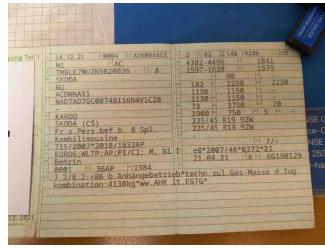 ung Teil I
14.12.21 8004 ATK004453
M1 AC
TMBLE7NU2N5020036 8
SKODA
NU
ACDNNAX1
NAD7AD7GC0074BI16N4V1C2B
-
KAROQ
SKODA (CS)
Fz.z.Pers.bef.b. 8 Spl
Kombilimousine
715/2007*2018/1832AP
EURO6;WLTP;AP;PI/CI; M, N1 I
Benzin
0001 36AP 1984
7.2/8.2:+86 b.Anhängebetrieb*techn.zul.Ges-Masse d.Zug
kombination:4130kg*ww.AHK lt.EGTG*
12.2021
4382-4496 1841
1597-1628 1579
90
182 2230 2230
1130 1150 -
1130 1150 -
73 3750 70
1900 750 5 -
225/45 R19 92W
225/45 R19 92W
-
7/-
e8*2007/46*0272*21
21.04.21 K GG190129